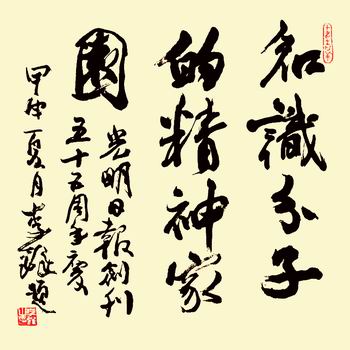 知識分子
的精神家
園
光明日報創刊
五十五周年慶
甲申夏月李鐸題